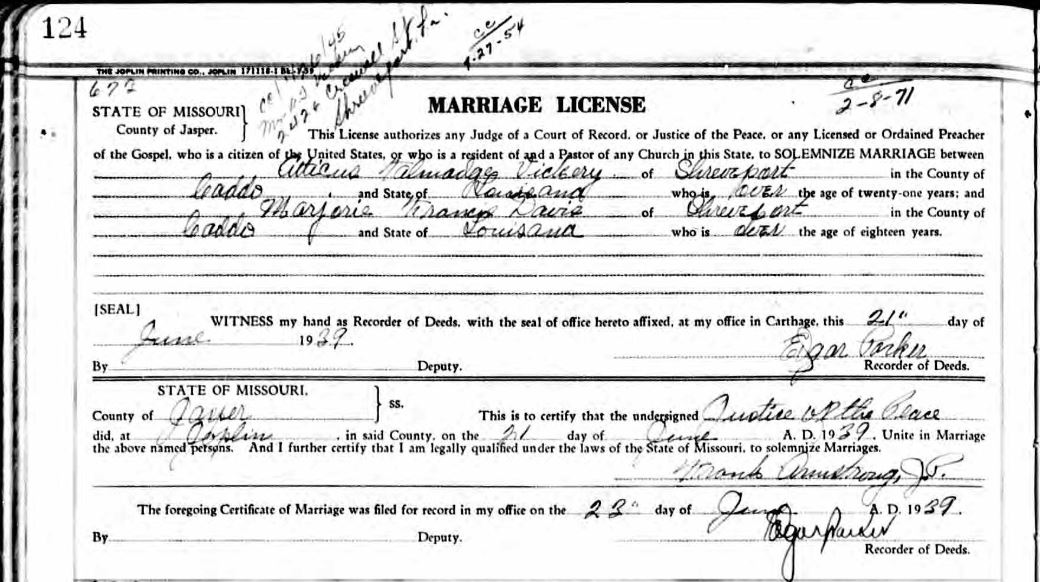 124
cc/
7-27-54
cc
2-8-71
THE JOPLIN PRINTING CO., JOPLIN 171118-1
672
Shreveport, La.
STATE OF MISSOURI
County of Jasper.
MARRIAGE LICENSE
This License authorizes any Judge of a Court of Record, or Justice of the Peace, or any Licensed or Ordained Preacher
of the Gospel, who is a citizen of the United States, or who is a resident of and a Pastor of any Church in this State, to SOLEMNIZE MARRIAGE between
Atticus Talmadge Vickery of Shreveport in the County of
Caddo and State of Louisiana who is over the age of twenty-one years; and
Marjorie Francis Davis of Shreveport in the County of
Caddo and State of Louisana who is over the age of eighteen years.
[SEAL]
WITNESS my hand as Recorder of Deeds, with the seal of office hereto affixed, at my office in Carthage, this 21" day of
June 1939.
Edgar Parker
By Deputy. Recorder of Deeds.
STATE OF MISSOURI,
County of Jasper ss. This is to certify that the undersigned Justice of the Peace
did, at Joplin, in said County, on the 21 day of June A. D. 1939, Unite in Marriage
the above named persons. And I further certify that I am legally qualified under the laws of the State of Missouri, to solemnize Marriages.
Frank Armstrong, J.P.
The foregoing Certificate of Marriage was filed for record in my office on the 23" day of June A. D. 1939.
Edgar Parker
By Deputy.
Recorder of Deeds.